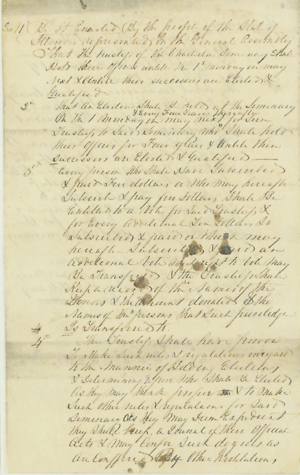 Sec 1 Be it Enacted (By the people of the State of
represented in the General Assembly
That the trustees of the Seminary shall
Hold their offices until the 1st monday in may
Next & until their successors are Elected &
Qualified
2 That an Election shall be held at the Seminary
On the 1 Monday in may next for
& Every Four years thereafter
Trustees to Said Seminary who shall hold
their offices for Four years & until their
successors are Elected & Qualified
3 Every person who shall have subscribed
& paid Ten dollars or who may hereafter
Subscribe & pay Ten dollars shall be
Entitled to a Vote for Said Trustees &
for Every additional Ten dollars So
Subscribed & paid or which may
hereafter be Subscribed & paid an
additional vote which right to vote may
be Transferred & the Trustees shall
Keep a record of the Names of the
Donors & the amount donated & the
Names of the persons that Such privilege
is Transferred to
4 The Trustees shall have power
to Make Such rules & regulations in regard
to the Manner of Holding Elections
& determining upon who shall be Elected
as they may think proper & to make
Such other rules & regulations for Said
Seminary as they may deem Expedient
they shall keep a Journal of their Official
Acts & may Confer Such degrees as
are Conferred by other Institutions